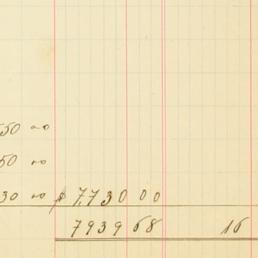 50 00
50 00
30 00 $ 7,730 00
7939 68 16